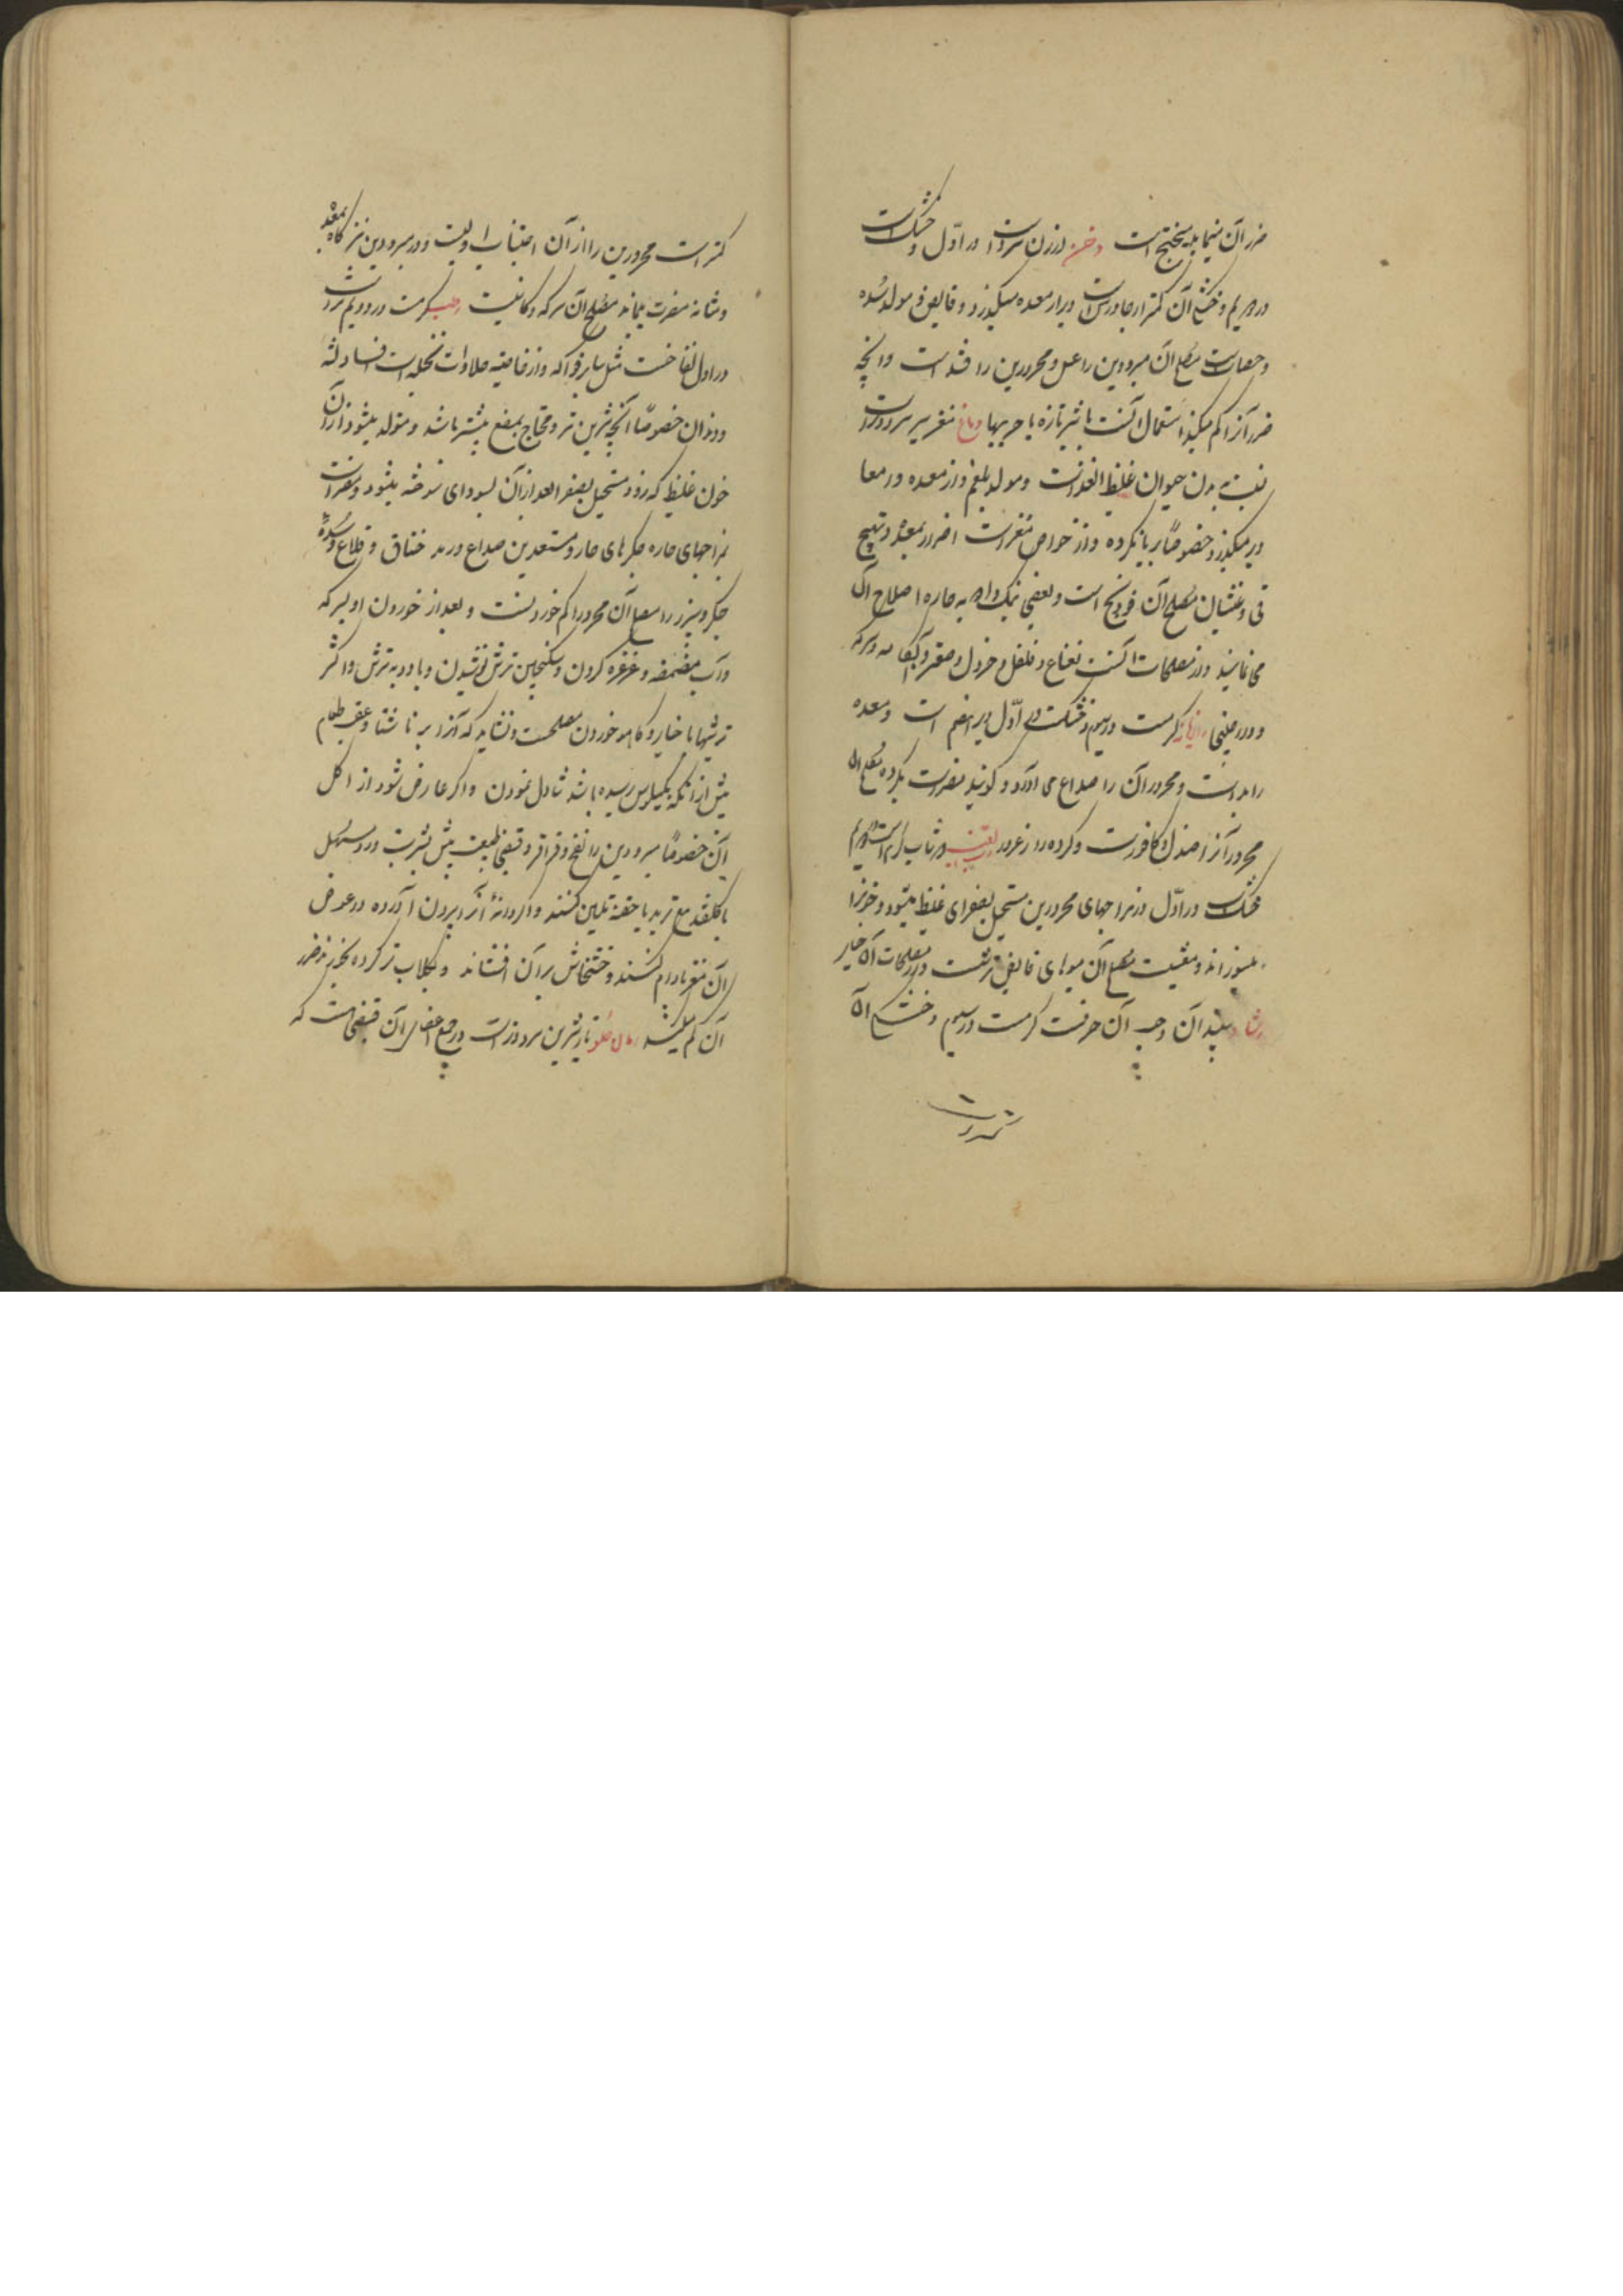 ضرر آن سیما بله بختج است دخن ارزن سردست در اوّل و خشک است
در دویم و خشکی آن کمتر از جاورس است دیر از معده میگذرد و قابض و مولد سُده
و حصات است مصلح آن مبرودین را عسل و محرورین را قند است و آنچه
ضرر آنرا کم میکند استعمال آنست با شیر تازه یا چربیها دماغ مغز سر سرد و تر است
نسبت به بدن حیوان غلیظ الغذاست و مولد بلغم و از معده و معا
دیر میگذرد خصوصًا بریان کرده و از خواص مغز است اضرار بمعده و تهییج
قی و غثیان مصلح آن فودنج است و بعضی بنمک و ادویه حاره اصلاح آن
می نمایند و از مصلحات آنست نعناع و فلفل و خردل و صعتر و آبکامه و سرکه
و دارچینی رازیانه گرمست در سیم و خشکست در اوّل دیر هضم است و معده
را بد است و محروران را صداع می آورد و گویند مضرست بگرده مصلح آن
محرور آنرا صندل و کافورست و گرده را زعرور
خشک است در اوّل در مزاجهای محرورین مستحیل بصفرای غلیظ میشود و خونرا
میسوزاند و مغثیست مصلح آن میوهای قابض ترشست و از مصلحات آن خیار
رشاد سپندان و حب آن حرفست گرمست در سیم و خشکی آن
کمتر است
کمتر است محرورین را از آن اجتناب اولیست و در مبرودین نیز گاه بمعده
و مثانه مضرت میرساند مصلح آن سرکه و کاسنیست رطب گرمست در دویم و تر است
در اول نفاخست مثل سایر فواکه و از خاصیته حلاوات نخلیه است افساد لثه
و دندان خصوصًا آنچه شیرین تر و محتاج بمضغ بیشتر باشد و متولد میشود از آن
خون غلیظ که زود مستحیل بصفرا و بعد از آن بسودای سوخته میشود و مضر است
بمزاجهای حاره و جگرهای حار و مستعدین صداع و رمد و خناق و قلاع و سُدهٔ
جگر و سپرز را مصلح آن محرور را کم خوردنست و بعد از خوردن او بسرکه
و آب مضمضه و غرغره کردن و سکنجبین ترش نوشیدن و با ادویه ترش و اکثر
ترشیها با خیار و کاهو خوردن مصلحست و نشاید که آنرا بر ناشتا و عقب طعام
پیش از آنکه بکیلوس رسیده باشد تناول نمودن و اگر عارض شود از اکل
آن خصوصًا مبرودین را نفخ و قراقر و قبض طبیعت پیش بشربت ورد مسهل
یا گلقند مع تربد یا حقنه تلیین کنند و اگر دانهٔ آنرا بیرون آورده در عوض
آن مغز بادام کنند و خشخاش بر آن افشاند و بگلاب تر کرده بخورند ضرر
آن کم میکند رمان حلو انار شیرین سرد و تر است و در جمیع اصناف آن قبضی هست که